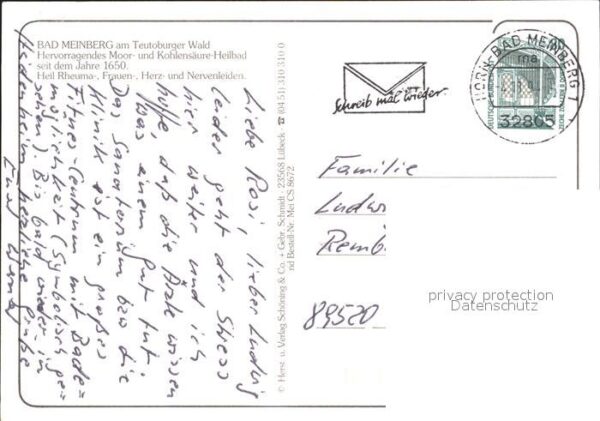 BAD MEINBERG am Teutoburger Wald
Hervorragendes Moor- und Kohlensäure-Heilbad
seit dem Jahre 1650.
Heil Rheuma-, Frauen-, Herz- und Nervenleiden.
Liebe Rosi, lieber Ludwig
leider geht der Stress
hier weiter und ich
hoffe, daß die Ärzte wissen
was einem gut tut.
Das Sanatorium bzw die
Klinik ist ein großes
Fitness-Centrum mit Bade=
möglichkeit (Symbolisch ge=
sehen). Bis bald wieder in
Heidenheim herzliche Grüße
Euer Werner
© Herst. u. Verlag Schöning & Co. + Gebr. Schmidt · 23568 Lübeck · ☎ (04 51) 310 310 0
nd Bestell-Nr. Mei CS 8672
Schreib mal wieder
HORN-BAD MEINBERG 1
ma
32805
Familie
Ludw
Remb
89520
privacy protection
Datenschutz